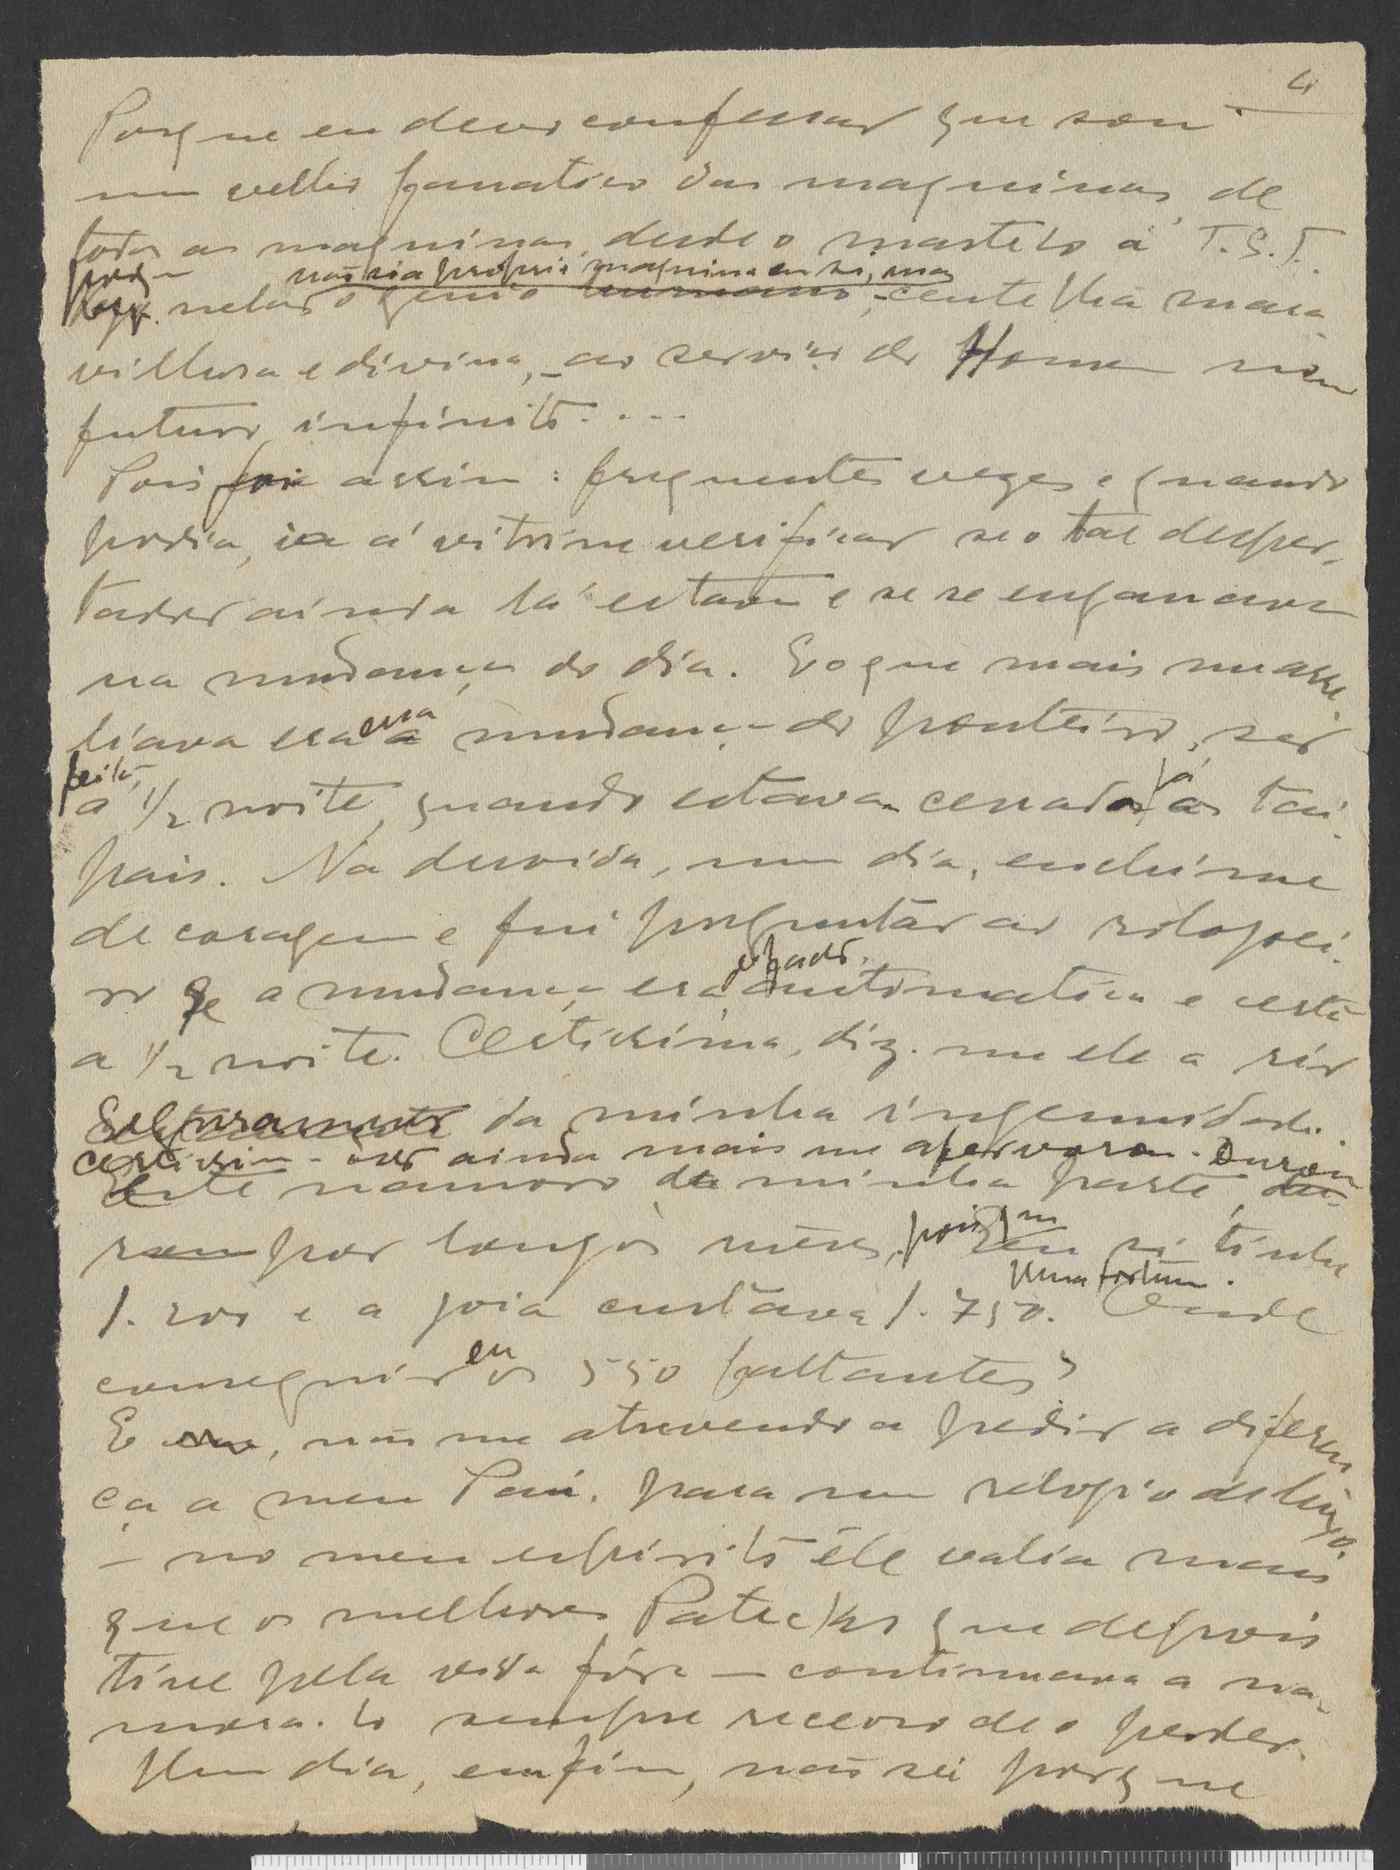 4
Porque eu devo confessar que sou
um velho fanatico das maquinas, de
todas as maquinas, desde o martelo á T.S.F.
porq. não via a propria maquina em si, mas
nelas o genio humano, centelha mara-
vilhosa e divina, - ao serviço do Homem num
futuro infinito....
Pois foi assim: frequentes vezes e quando
podia, ia á vitrine verificar se o tal desper-
tador ainda lá estava e se se enganava
na mudança do dia. E o que mais me arre-
liava era essa a mudança do ponteiro, ser
feita,
á 1/2 noite, quando estavam cerrados já os tai-
pais. Na duvida, um dia, enchi-me
de coragem e fui perguntar ao relojoei-
ro se a mudança era automatica e certa
a 1/2 noite. Certissima, diz-me ele a rir
Seguramente da minha ingenuidade.
ainda mais me afervorou. Durou
Este namoro da minha parte, du-
rou por longos mêses, pois que eu só tinha
Uma fortuna.
1.200 e a joia custava 1.750. Onde
conseguir eu os 550 faltantes?
E eu, não me atrevendo a pedir a diferen-
ça a meu Pai, para um relogio de luxo,
- no meu espirito êle valia mais
que os melhores Pateks que depois
tive pela vida fóra - continuava a na-
mora-lo sempre receoso de o perder.
Um dia, emfim, não sei porque